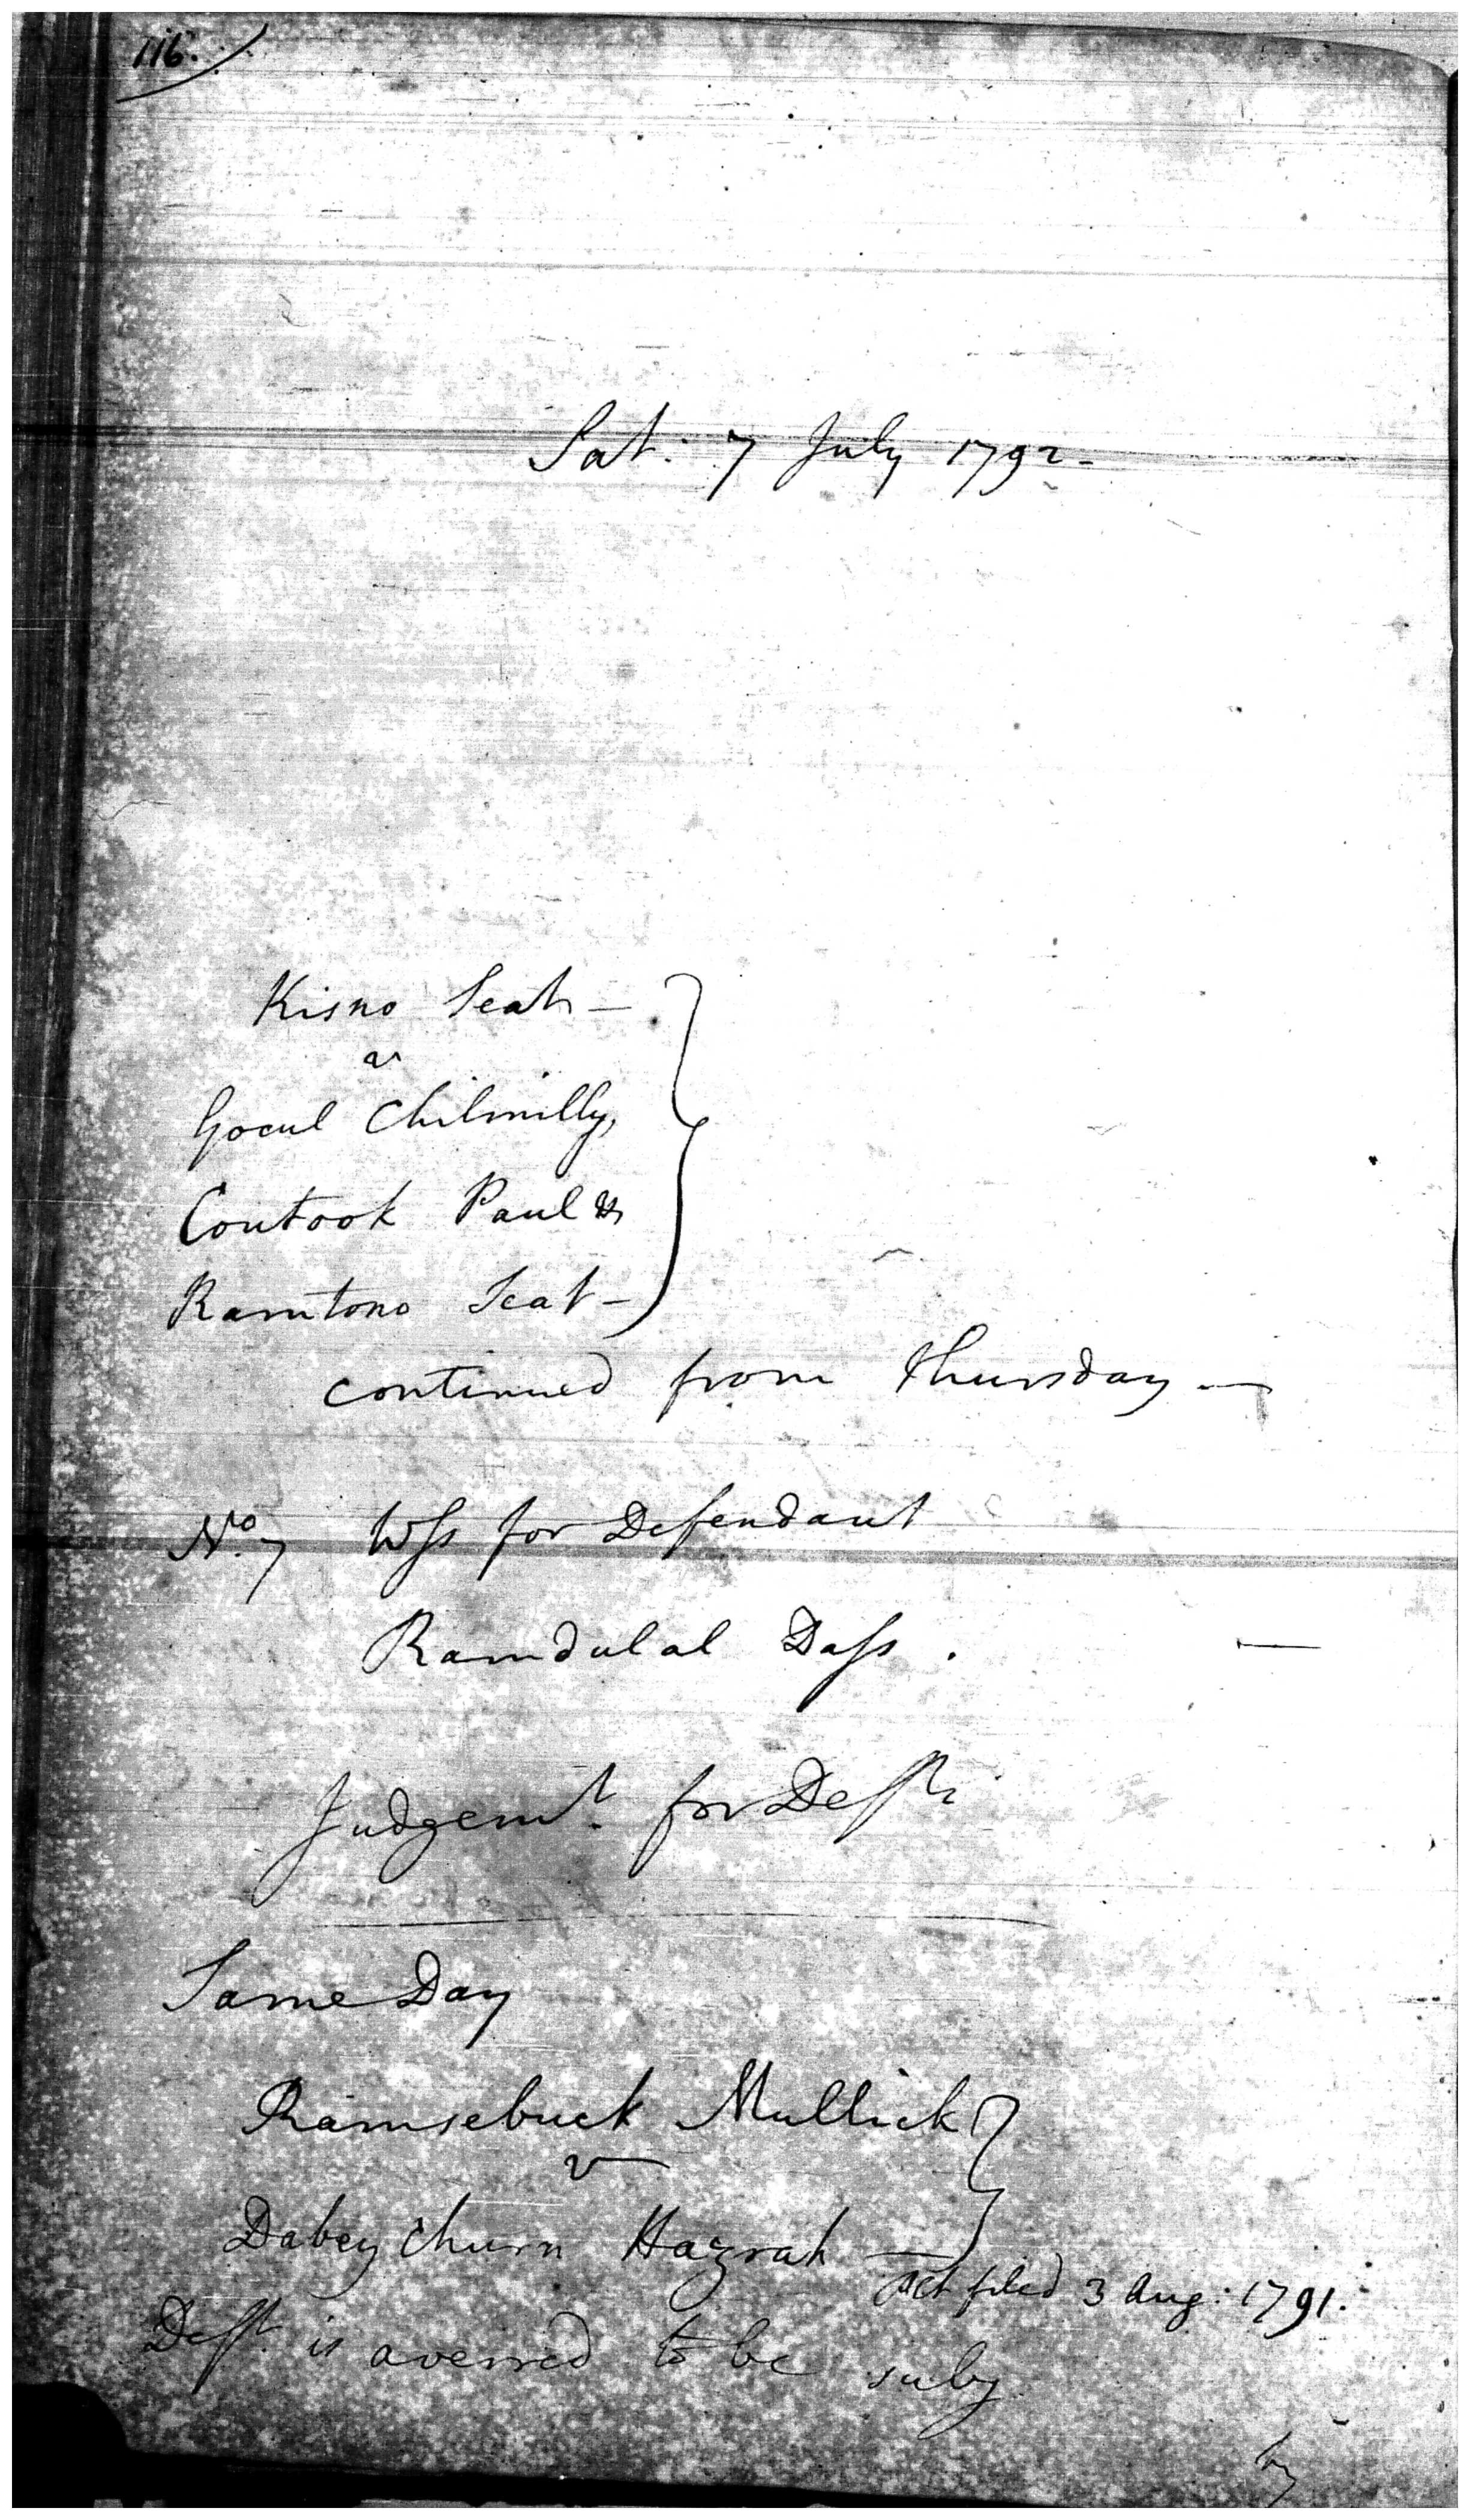 116.
Sat: 7 July 1792-
Kisno Seat -
as
Gocul Chilmilly,
Contook Paul &
Ramtono Seat -
continued from Thursday -
No. 7 Wss for Defendant
Ramdulal Dass .
Judgemt. for Deft.
Same Day
Ramsebuck Mullick
v
Dabey Churn Hazrah -
filed 3 Aug: 1791.
Deft. is averred to be subj.
by